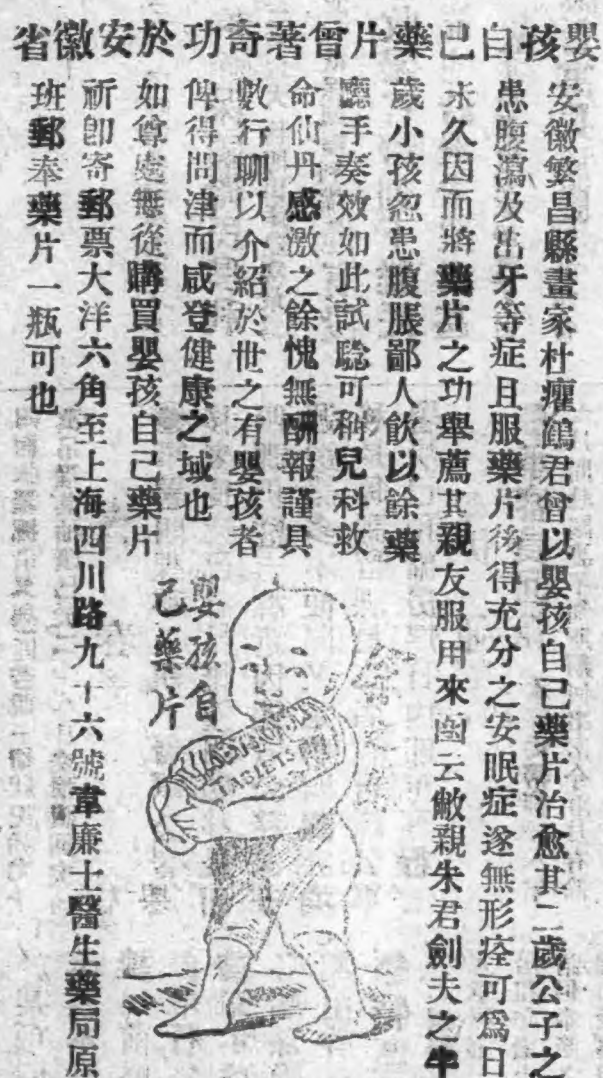 嬰孩自己藥片曾著奇功於安徽省
安徽繁昌縣畫家杜癯鶴君曾以嬰孩自己藥片治愈其二歲公子之
患腹瀉及出牙等症且服藥片後得充分之安眠症遂無形痊可爲日
未久因而將藥片之功舉薦其親友服用來函云敝親朱君劍夫之半
歲小孩忽患腹脹鄙人飲以餘藥
應手奏效如此試騐可稱兒科救
命仙丹感激之餘愧無酬報謹具
數行聊以介紹於世之有嬰孩者
俾得問津而咸登健康之域也
如尊處無從購買嬰孩自己藥片
祈卽寄郵票大洋六角至上海四川路九十六號韋廉士醫生藥局原
班郵奉藥片一瓶可也
嬰孩自
己藥片
BABY'S OWN
TABLETS